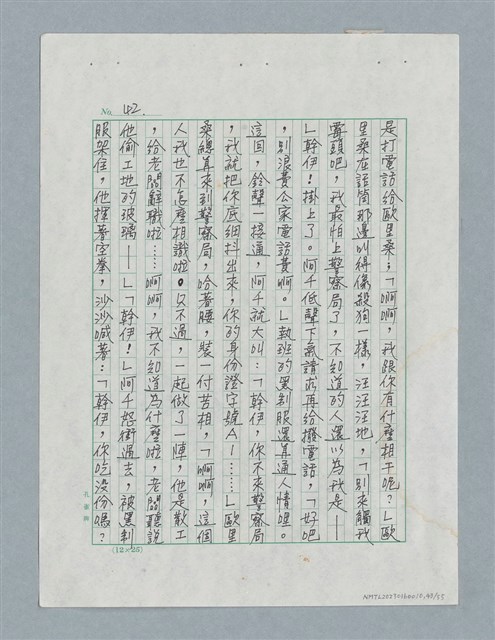 No. 42.
是打電話給歐里桑;「啊啊,我跟你有什麼相干呢?」歐
里桑在話筒那邊叫得像殺狗一樣,汪汪汪地,「別來觸我
霉頭吧,我最怕上警察局了,不知道的人還以為我是——
」幹伊!掛上了。阿千低聲下氣請求再給撥電話,「好吧
,別浪費公家電話費啊。」執班的黑制服還算通人情哩。
這回,鈴聲一接通,阿千就大叫:「幹伊,你不來警察局
,我就把你底細抖出來,你的身份證字號A1……」歐里
桑總算來到警察局,哈著腰,裝一付苦相,「啊啊,這個
人我也不怎麼相識啦。只不過,一起做了一陣,他是散工
,給老闆辭職啦……啊啊,我不知道為什麼啦,老闆聽說
他偷工地的玻璃——」「幹伊!」阿千怒衝過去,被黑制
服架住,他揮著空拳,沙沙喊著:「幹伊,你吃沒份嗎?
(12×25)
NMTL20290160010,40/55